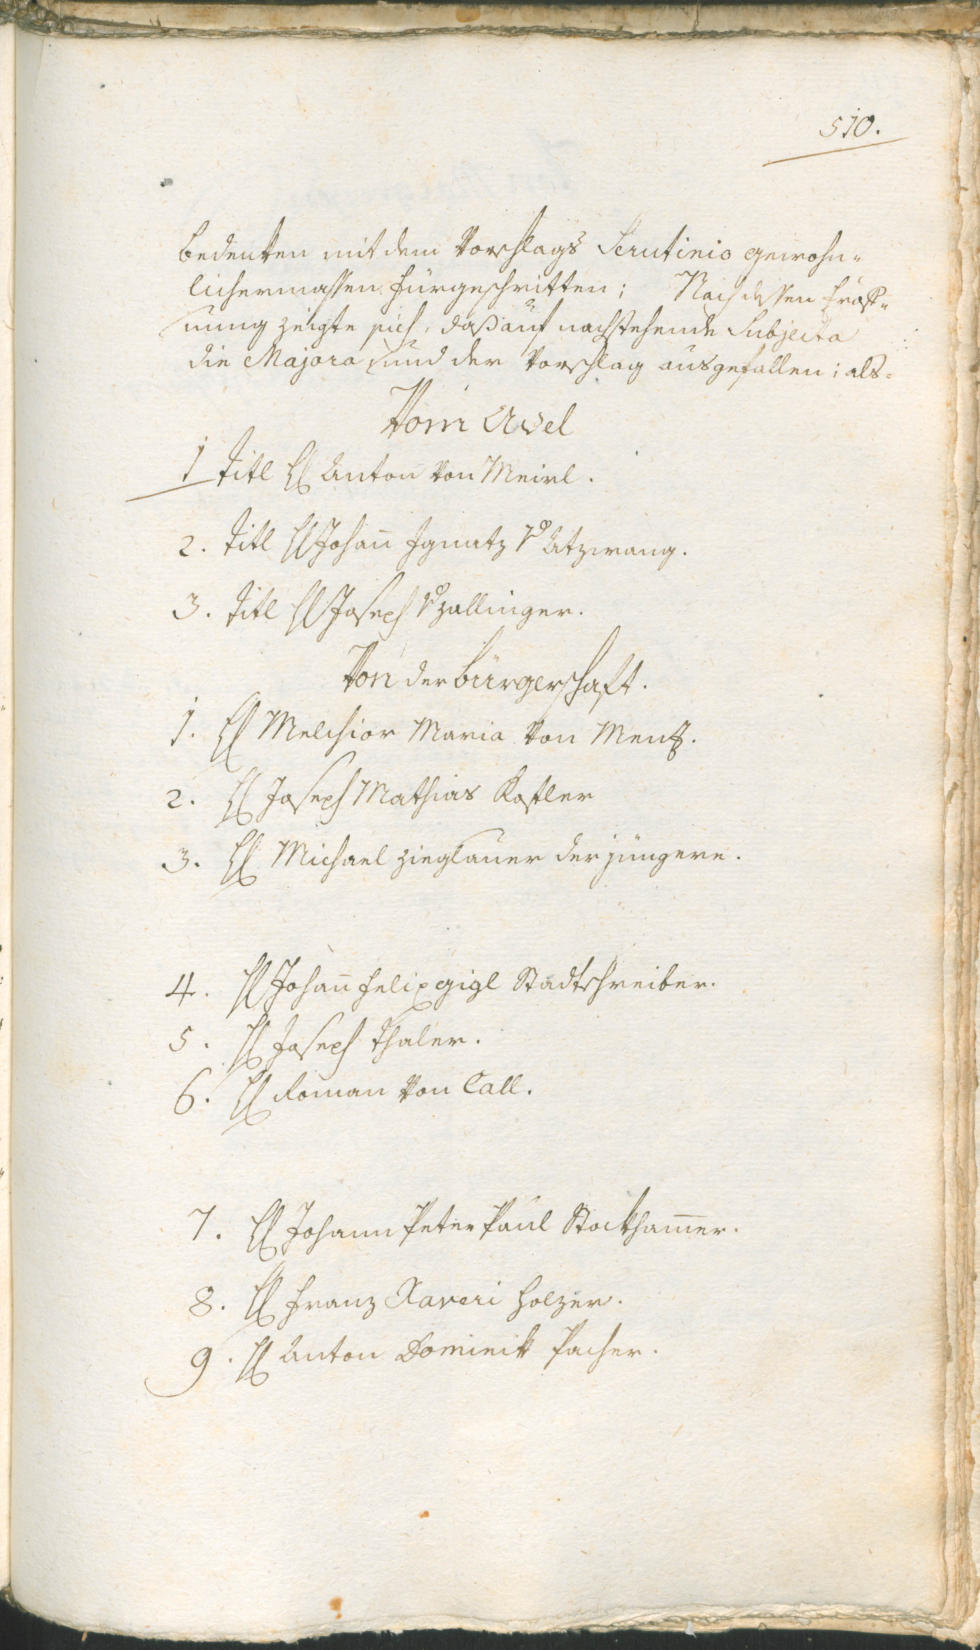 510.
bedeuten mit dem Vorschlags Scrutinio gewohn-
lichermassen fürgeschritten; Nach dessen Eröff-
nung zeigte sich, daß auf nachstehende Subjecta
die Majora und der Vorschlag ausgefallen; als-
Vom Adel
1 Titl H Anton von Meirl.
2. Titl H Johan̄ Ignatz v Atzwang.
3. Titl H Joseph v Zallinger.
Von der Bürgerschaft.
1. H Melchior Maria von Menz.
2. H Joseph Mathias Kofler
3. H Michael Zieglauer der jüngere.
4. H Johan̄ Felix Gigl Stadtschreiber.
5. H Joseph Thaler.
6. H Roman von Call.
7. H Johann Peter Paul Stockham̄er.
8. H Franz Xaveri Holzer.
9. H Anton Dominik Pacher.